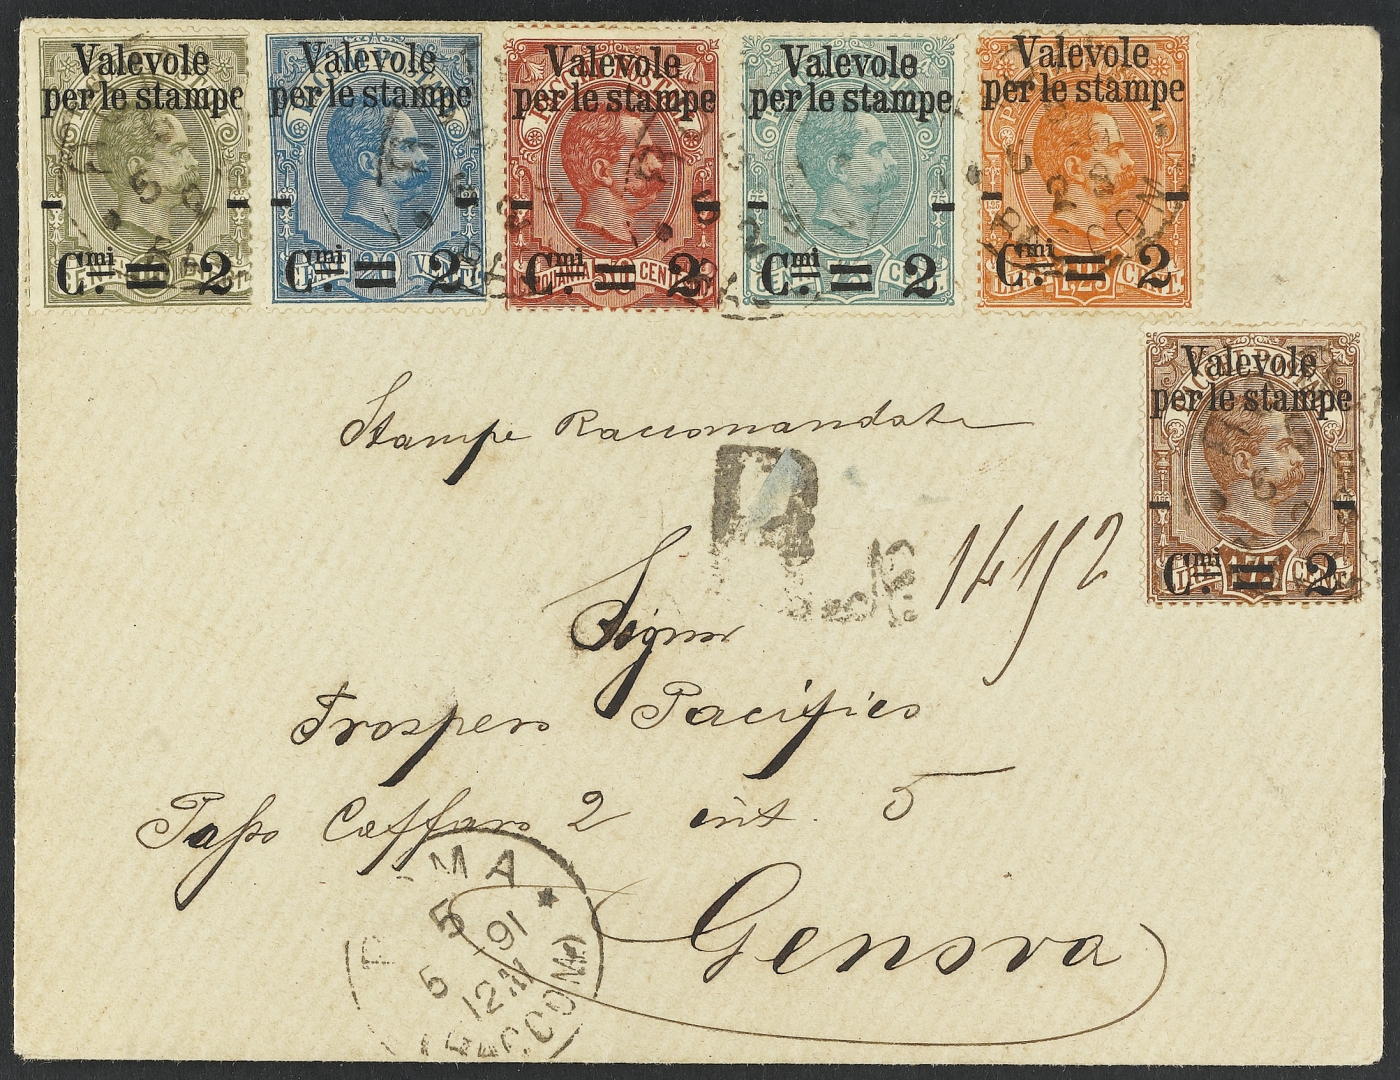 Valevole
per le stampe
Cmi. = 2
Valevole
per le stampe
Cmi. = 2
Valevole
per le stampe
Cmi. = 2
50 CENT
Valevole
per le stampe
Cmi. = 2
75
Valevole
per le stampe
Cmi. = 2
1.25 CENT.
Valevole
per le stampe
Cmi. = 2
1.75 CENT.
Stampe Raccomandate
R
No 14152
Signor
Prospero Pacifico
Passo Caffaro 2 int. 5
Genova
ROMA
5
5 91
12 M
RACCOM)